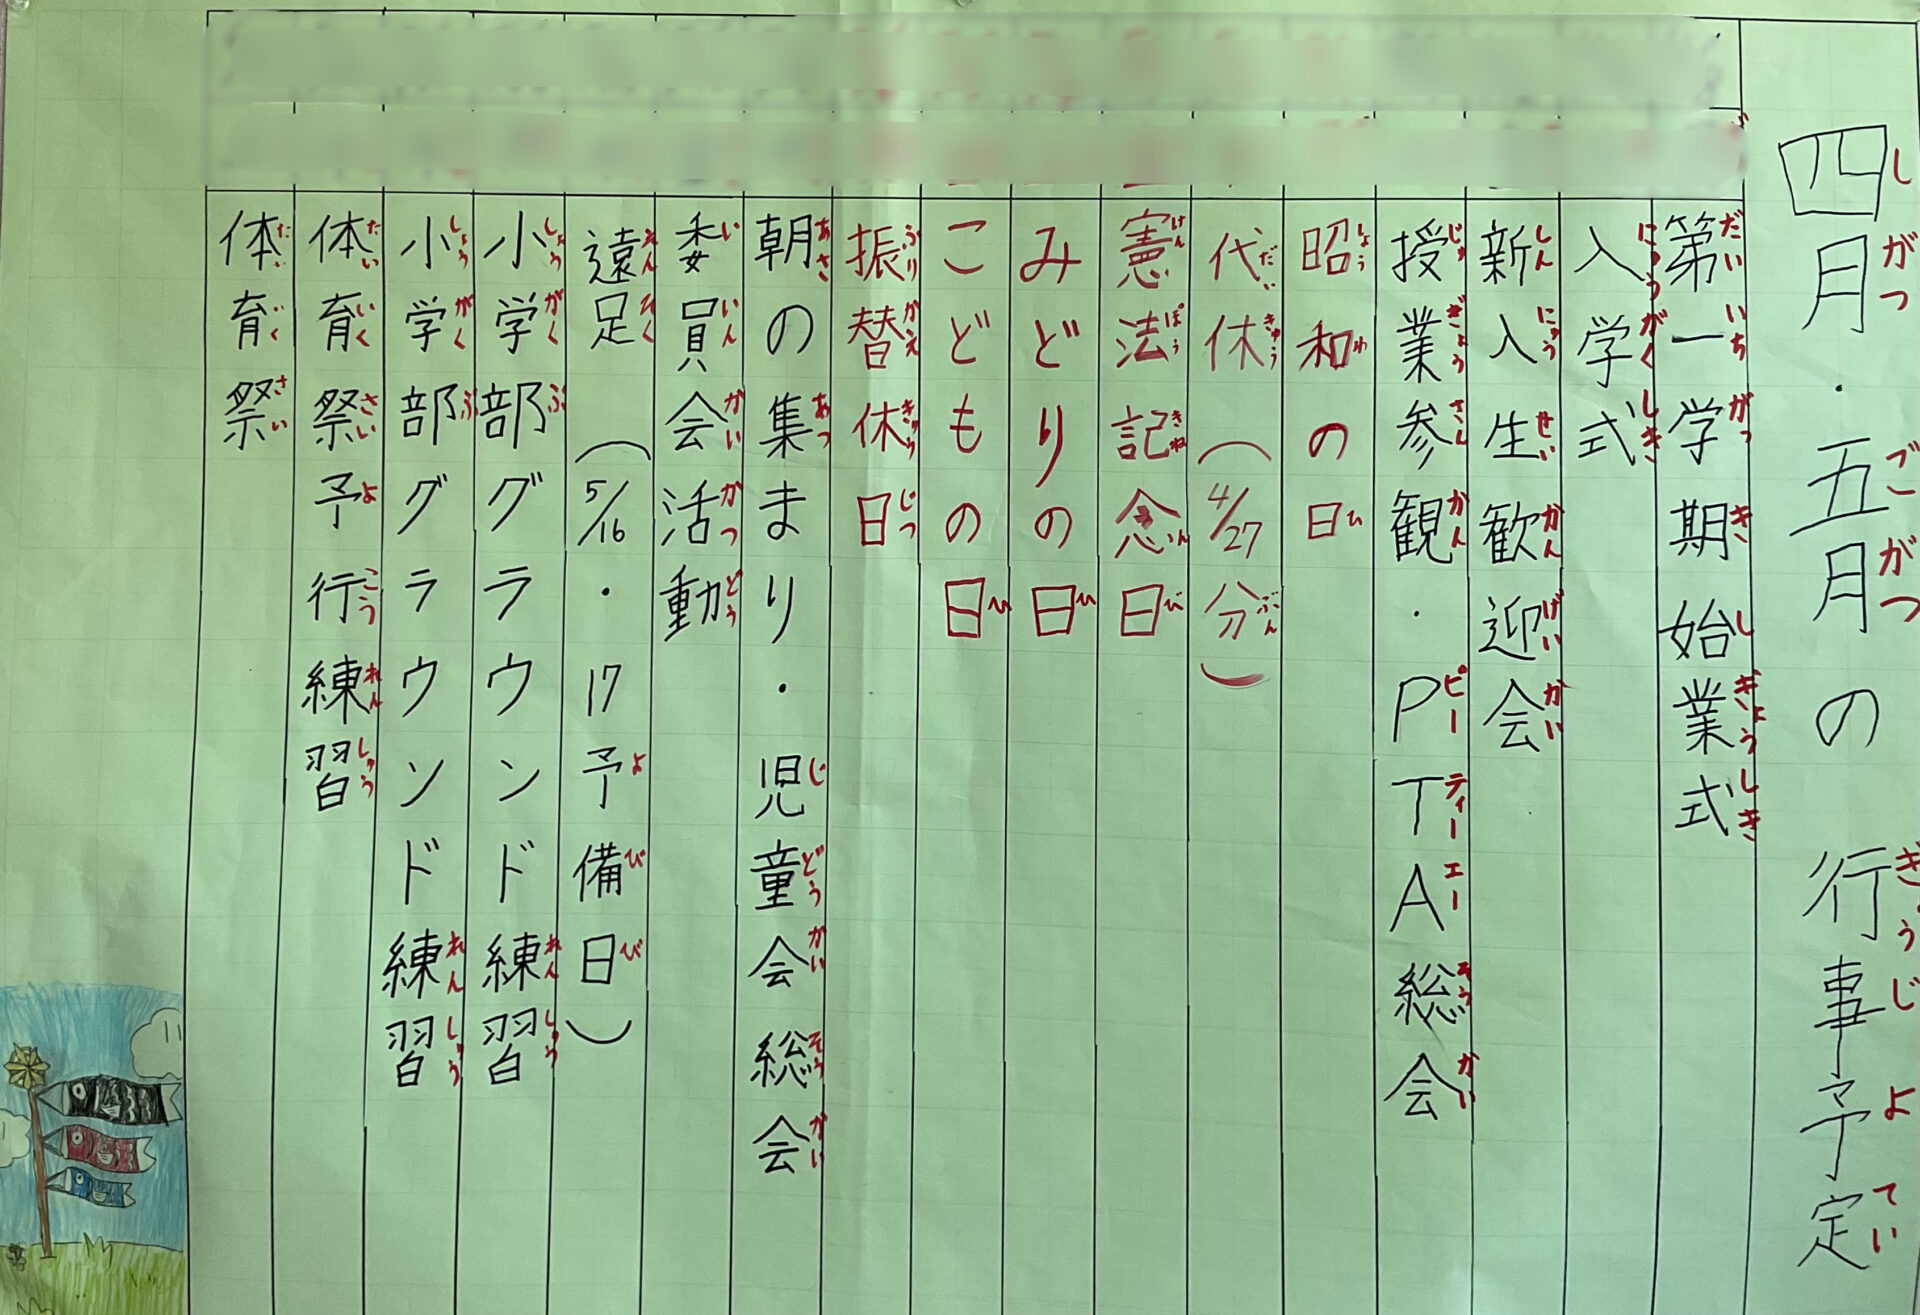 四月・五月の 行事予定
第一学期始業式
入学式
新入生歓迎会
授業参観・PTA総会
昭和の日
代休(4/27分)
憲法記念日
みどりの日
こどもの日
振替休日
朝の集まり・児童会総会
委員会活動
遠足 (5/16・17予備日)
小学部グラウンド練習
小学部グラウンド練習
体育祭予行練習
体育祭